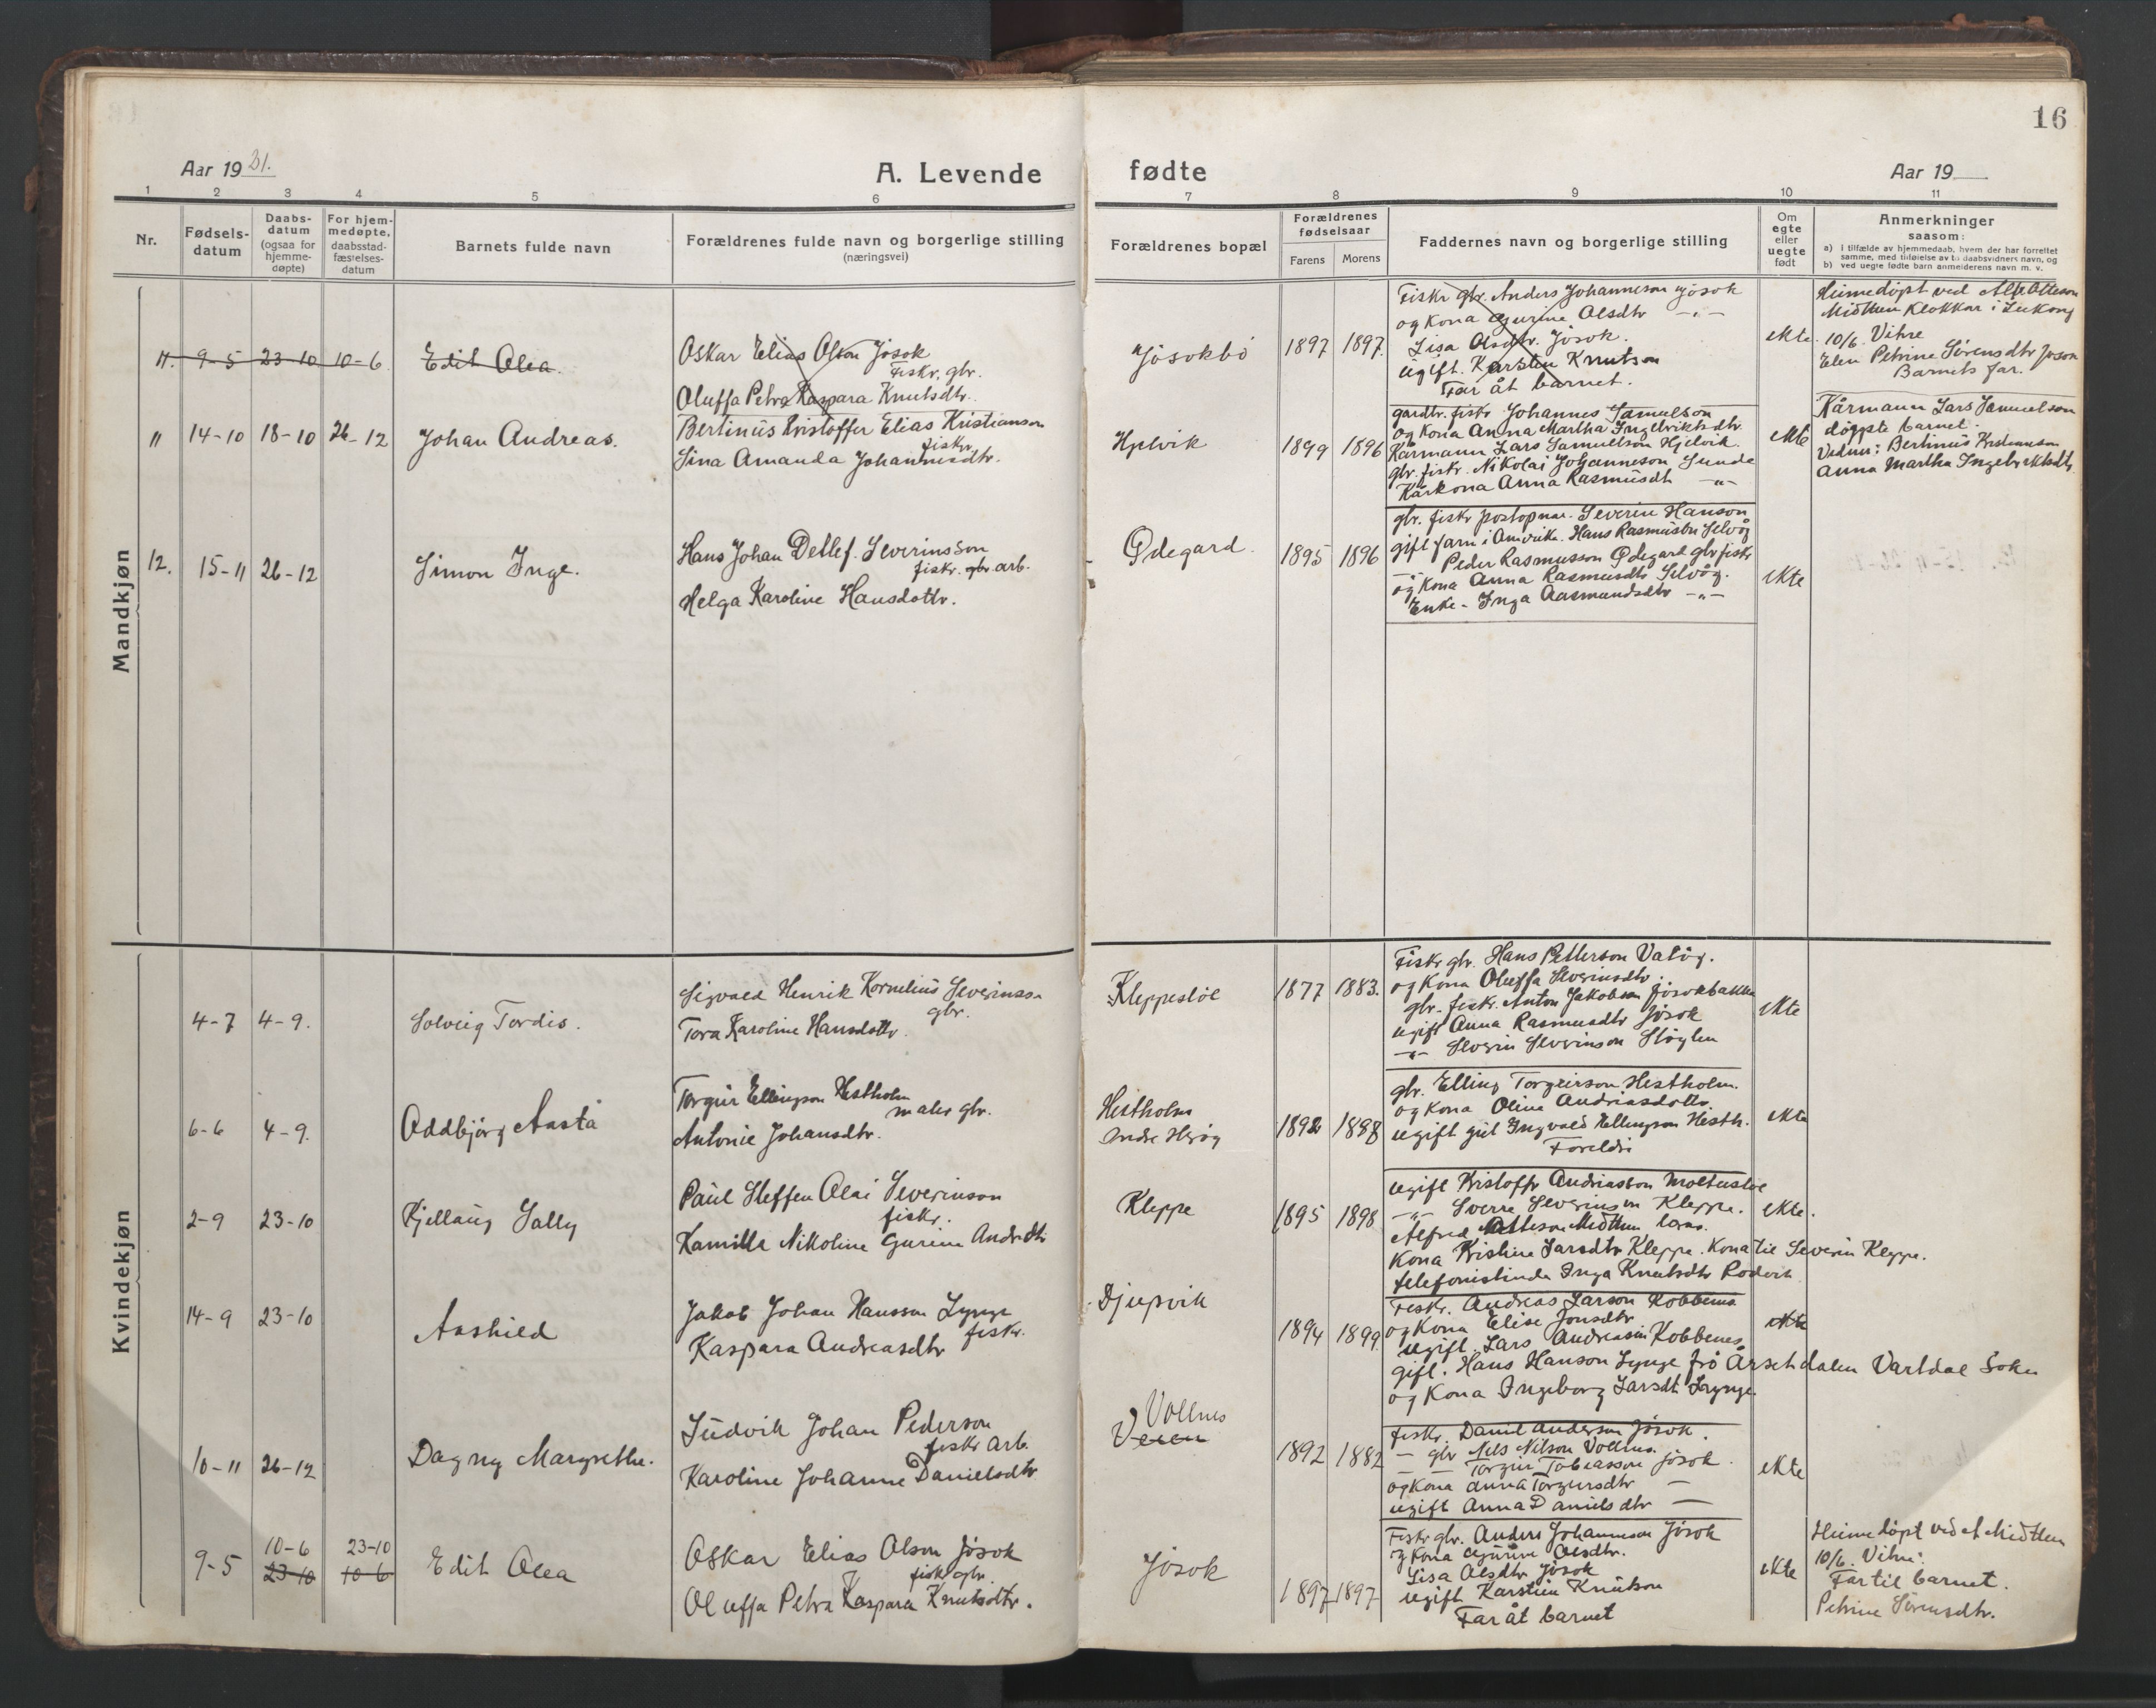 16
Aar 1921.
A. Levende
fødte
Aar 19
1 2 3 4 5 6 7 8 9 10 11
Nr.
Fødsels-
datum
Daabs-
datum
(ogsaa for
hjemme-
døpte)
For hjem-
medøpte,
daabsstad-
fæstelses-
datum
Barnets fulde navn
Forældrenes fulde navn og borgerlige stilling
(næringsvei)
Forældrenes bopæl
Forældrenes
fødselsaar
Farens Morens
Faddernes navn og borgerlige stilling
Om
egte
eller
uegte
født
Anmerkninger
saasom:
a) i tilfælde av hjemmedaab, hvem der har forrettet
samme, med tilføielse av to daabsvidners navn, og
b) ved uegte fødte barn anmelderens navn m. v.
Mandkjøn
11. 9-5 23-10 10-6 Edit Olea.
Oskar Elias Olson Jösok
Fiskr, gbr.
Oluffa Petra Kaspara Knutsdtr.
Jösokbö 1897 1897.
Fiskr gbr. Anders Johanneson Jösok
og Kona Gurine Olsdtr -"-
Lisa Olsdtr. Jösok.
ugift. Karsten Knutson
Far åt barnet.
ekte.
Heimedöpt ved Alf Otteson
Midttun Klokkar i
10/6. Vitne
Elen Petrine Sörensdtr Jösok
Barnets far.
11 14-10 18-10 26-12 Johan Andreas.
Bertinus Kristoffer Elias Kristianson
fiskr
Sina Amanda Johannesdtr.
Hjelvik 1899 1896
gardbr. fiskr Johannes Samulson
og Kona Anna Martha Ingebriktsdtr
Kårmann Lars Samuelson Hjelvik.
gbr. fiskr. Nikolai Johanneson Sunde
Kårkona Anna Rasmusdt -"-
ekte
Kårmann Lars Samuelson
döypte barnet.
Vidne: Bertinus Kristianson
Anna Martha Ingebriktsdtr.
12. 15-11 26-12 Simon Inge.
Hans Johan Detlef. Severinsson
fiskr. gbr arb.
Helga Karoline Hansdottr.
Ødegard. 1895 1896
gbr. fiskr postopnar. Severin Hanson
gift farm i Hans Rasmusson Selvåg
Peder Rasmusson Ødegard gbr fiskr
og Kona Anna Rasmusdtr Selvåg.
Enke - Inga Aasmundsdtr -"-
ekte
Kvindekjøn
4-7 4-9. Solveig Tordis.
Sigvald Henrik Kornelius Severinsson
gbr.
Tora Karoline Hansdottr.
Kleppestöl 1877 1883.
Fiskr gbr. Hans Petterson Valög.
og Kona Oluffa Severinsdtr.
gbr. fiskr. Anton Jakobson Jösokbakke
ugift Anna Rasmusdtr Jösok
-"- Severin Severinson Stöylen
ekte
6-6 4-9. Oddbjörg Aasta
Torgeir Ellingson Hestholm
maler gbr.
Antonie Johansdtr.
Hestholm
Indre Heröy 1892 1898
gbr. Elling Torgeirson Hestholm.
og Kona Oline Andriasdottr
ugift gut Ingvald Ellingson Hesth.
Foreldri
ekte
2-9 23-10 Kjellaug Sally
Paul Steffen Olai Severinson
fiskr.
Kamilla Nikoline Gurine Andrdtr
Kleppe 1895 1898
ugift Kristoffr Andriasson Moltustøl
-"- Sverre Severinson Kleppe.
Alfred Otteson Midttun
Kona Kristine Larsdtr Kleppe. Kona til Severin Kleppe.
telefonistinde Inga Knutsdtr Rodvik
ekte.
14-9 23-10 Aashild
Jakob Johan Hansson Lynge
fiskr.
Kaspara Andreasdtr
Djupvik 1894 1899
Fiskr. Andreas Larson Kobbenes
og Kona Elise Jonsdtr
ugift. Lars Andreason Kobbenes
gift. Hans Hanson Lynge frå Årsetdalen Vartdal Sokn
og Kona Ingeborg Larsdt Lynge.
ekte
10-11 26-12 Dagny Margrethe.
Ludvik Johan Pederson
fiskr arb.
Karoline Johanne Danielsdtr
Vollnes
1892 1882
fiskr. Daniel Anderson Jösok.
- gbr Nils Nilson Vollnes.
- Torgeir Tobiasson Jösok.
og Kona Anna Torgeirsdtr -
ugift Anna Danielsdtr -
ekte
9-5 10-6 23-10
23-10 10-6
Edit Olea
Oskar Elias Olson Jösok
fiskr gbr.
Oluffa Petra Kaspara Knutsdtr.
Jösok 1897 1897
Fiskr gbr. Anders Johanneson Jösok
og Kona Gurine Olsdtr.
Lisa Olsdtr Jösok
ugift Karsten Knutson
Far åt barnet
ekte
Heimedöpt ved A Midttun
10/6. Vitne:
Far til barnet.
Petrine Sörensdtr.